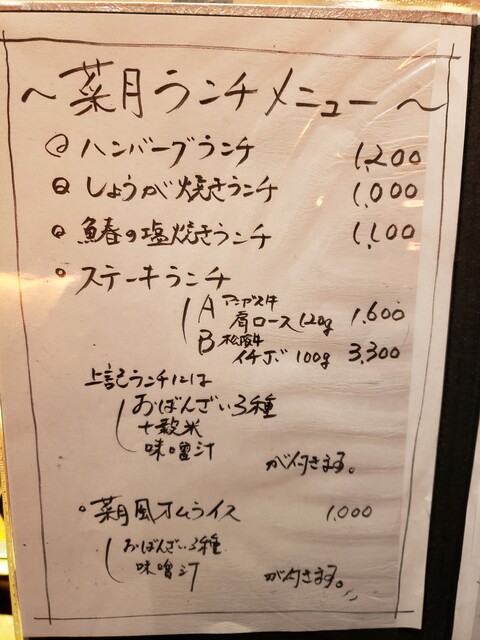 ～菜月ランチメニュー～
ハンバーグランチ 1,200
しょうが焼きランチ 1,000
鰆の塩焼きランチ 1,100
ステーキランチ
A アンガス牛 肩ロース120g 1,600
B 松阪牛 イチボ 100g 3,300
上記ランチには
おばんざい3種
十穀米
味噌汁
が付きます。
菜月風オムライス 1,000
おばんざい3種
味噌汁
が付きます。